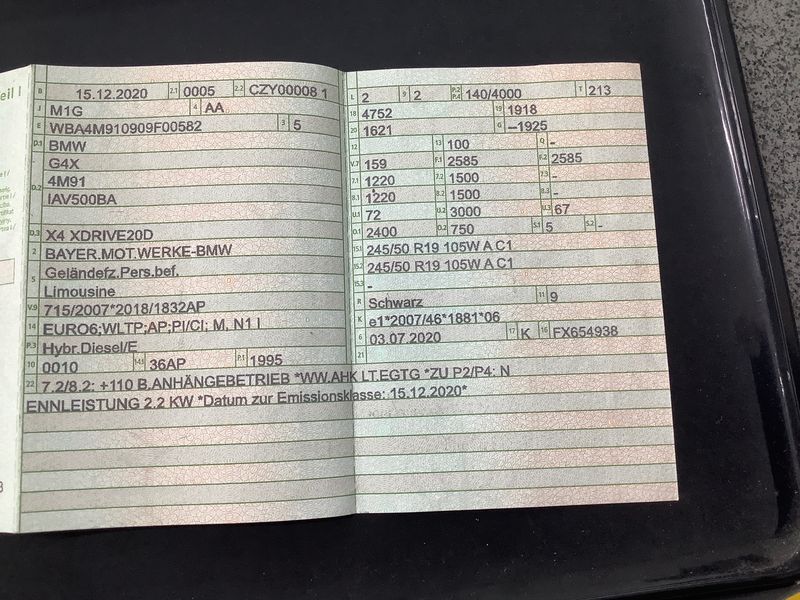 eil I
B 15.12.2020 2.1 0005 2.2 CZY00008 1
J M1G 4 AA
E WBA4M910909F00582 3 5
D.1 BMW
G4X
D.2 4M91
IAV500BA
D.3 X4 XDRIVE20D
2 BAYER.MOT.WERKE-BMW
5 Geländefz.Pers.bef.
Limousine
V.9 715/2007*2018/1832AP
14 EURO6;WLTP;AP;PI/CI; M, N1 I
P.3 Hybr.Diesel/E
10 0010 14.1 36AP P.1 1995
L 2 9 2 P.2 P.4 140/4000 T 213
18 4752 19 1918
20 1621 G –1925
12 13 100 Q -
V.7 159 F.1 2585 F.2 2585
7.1 1220 7.2 1500 7.3 -
8.1 1220 8.2 1500 8.3 -
U.1 72 U.2 3000 U.3 67
O.1 2400 O.2 750 S.1 5 S.2 -
15.1 245/50 R19 105W A C1
15.2 245/50 R19 105W A C1
15.3 -
R Schwarz 11 9
K e1*2007/46*1881*06
6 03.07.2020 17 K 16 FX654938
21
22 7.2/8.2: +110 B.ANHÄNGEBETRIEB *WW.AHK LT.EGTG *ZU P2/P4: N
ENNLEISTUNG 2.2 KW *Datum zur Emissionsklasse: 15.12.2020*